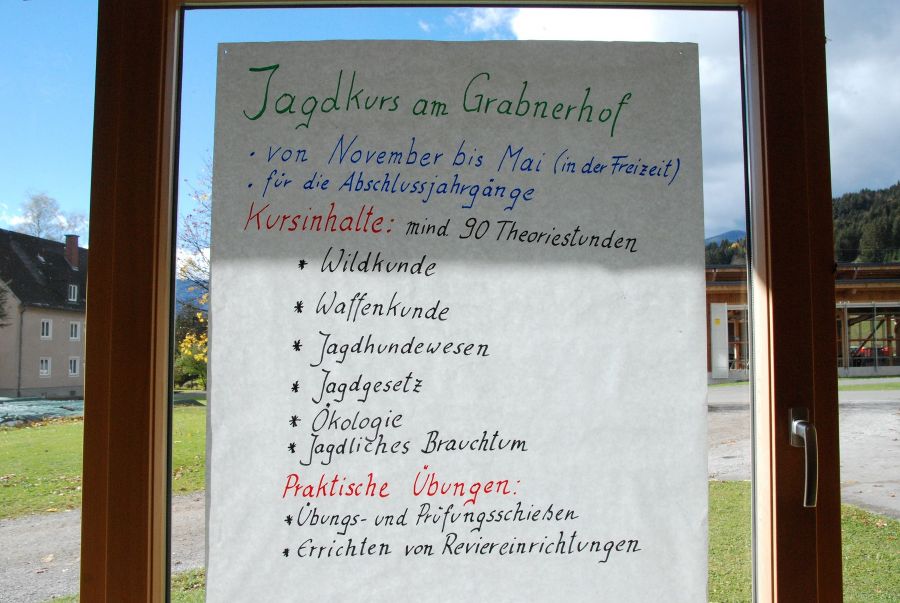 Jagdkurs am Grabnerhof
· von November bis Mai (in der Freizeit)
· für die Abschlussjahrgänge
Kursinhalte: mind 90 Theoriestunden
* Wildkunde
* Waffenkunde
* Jagdhundewesen
* Jagdgesetz
* Ökologie
* Jagdliches Brauchtum
Praktische Übungen:
* Übungs- und Prüfungsschießen
* Errichten von Reviereinrichtungen